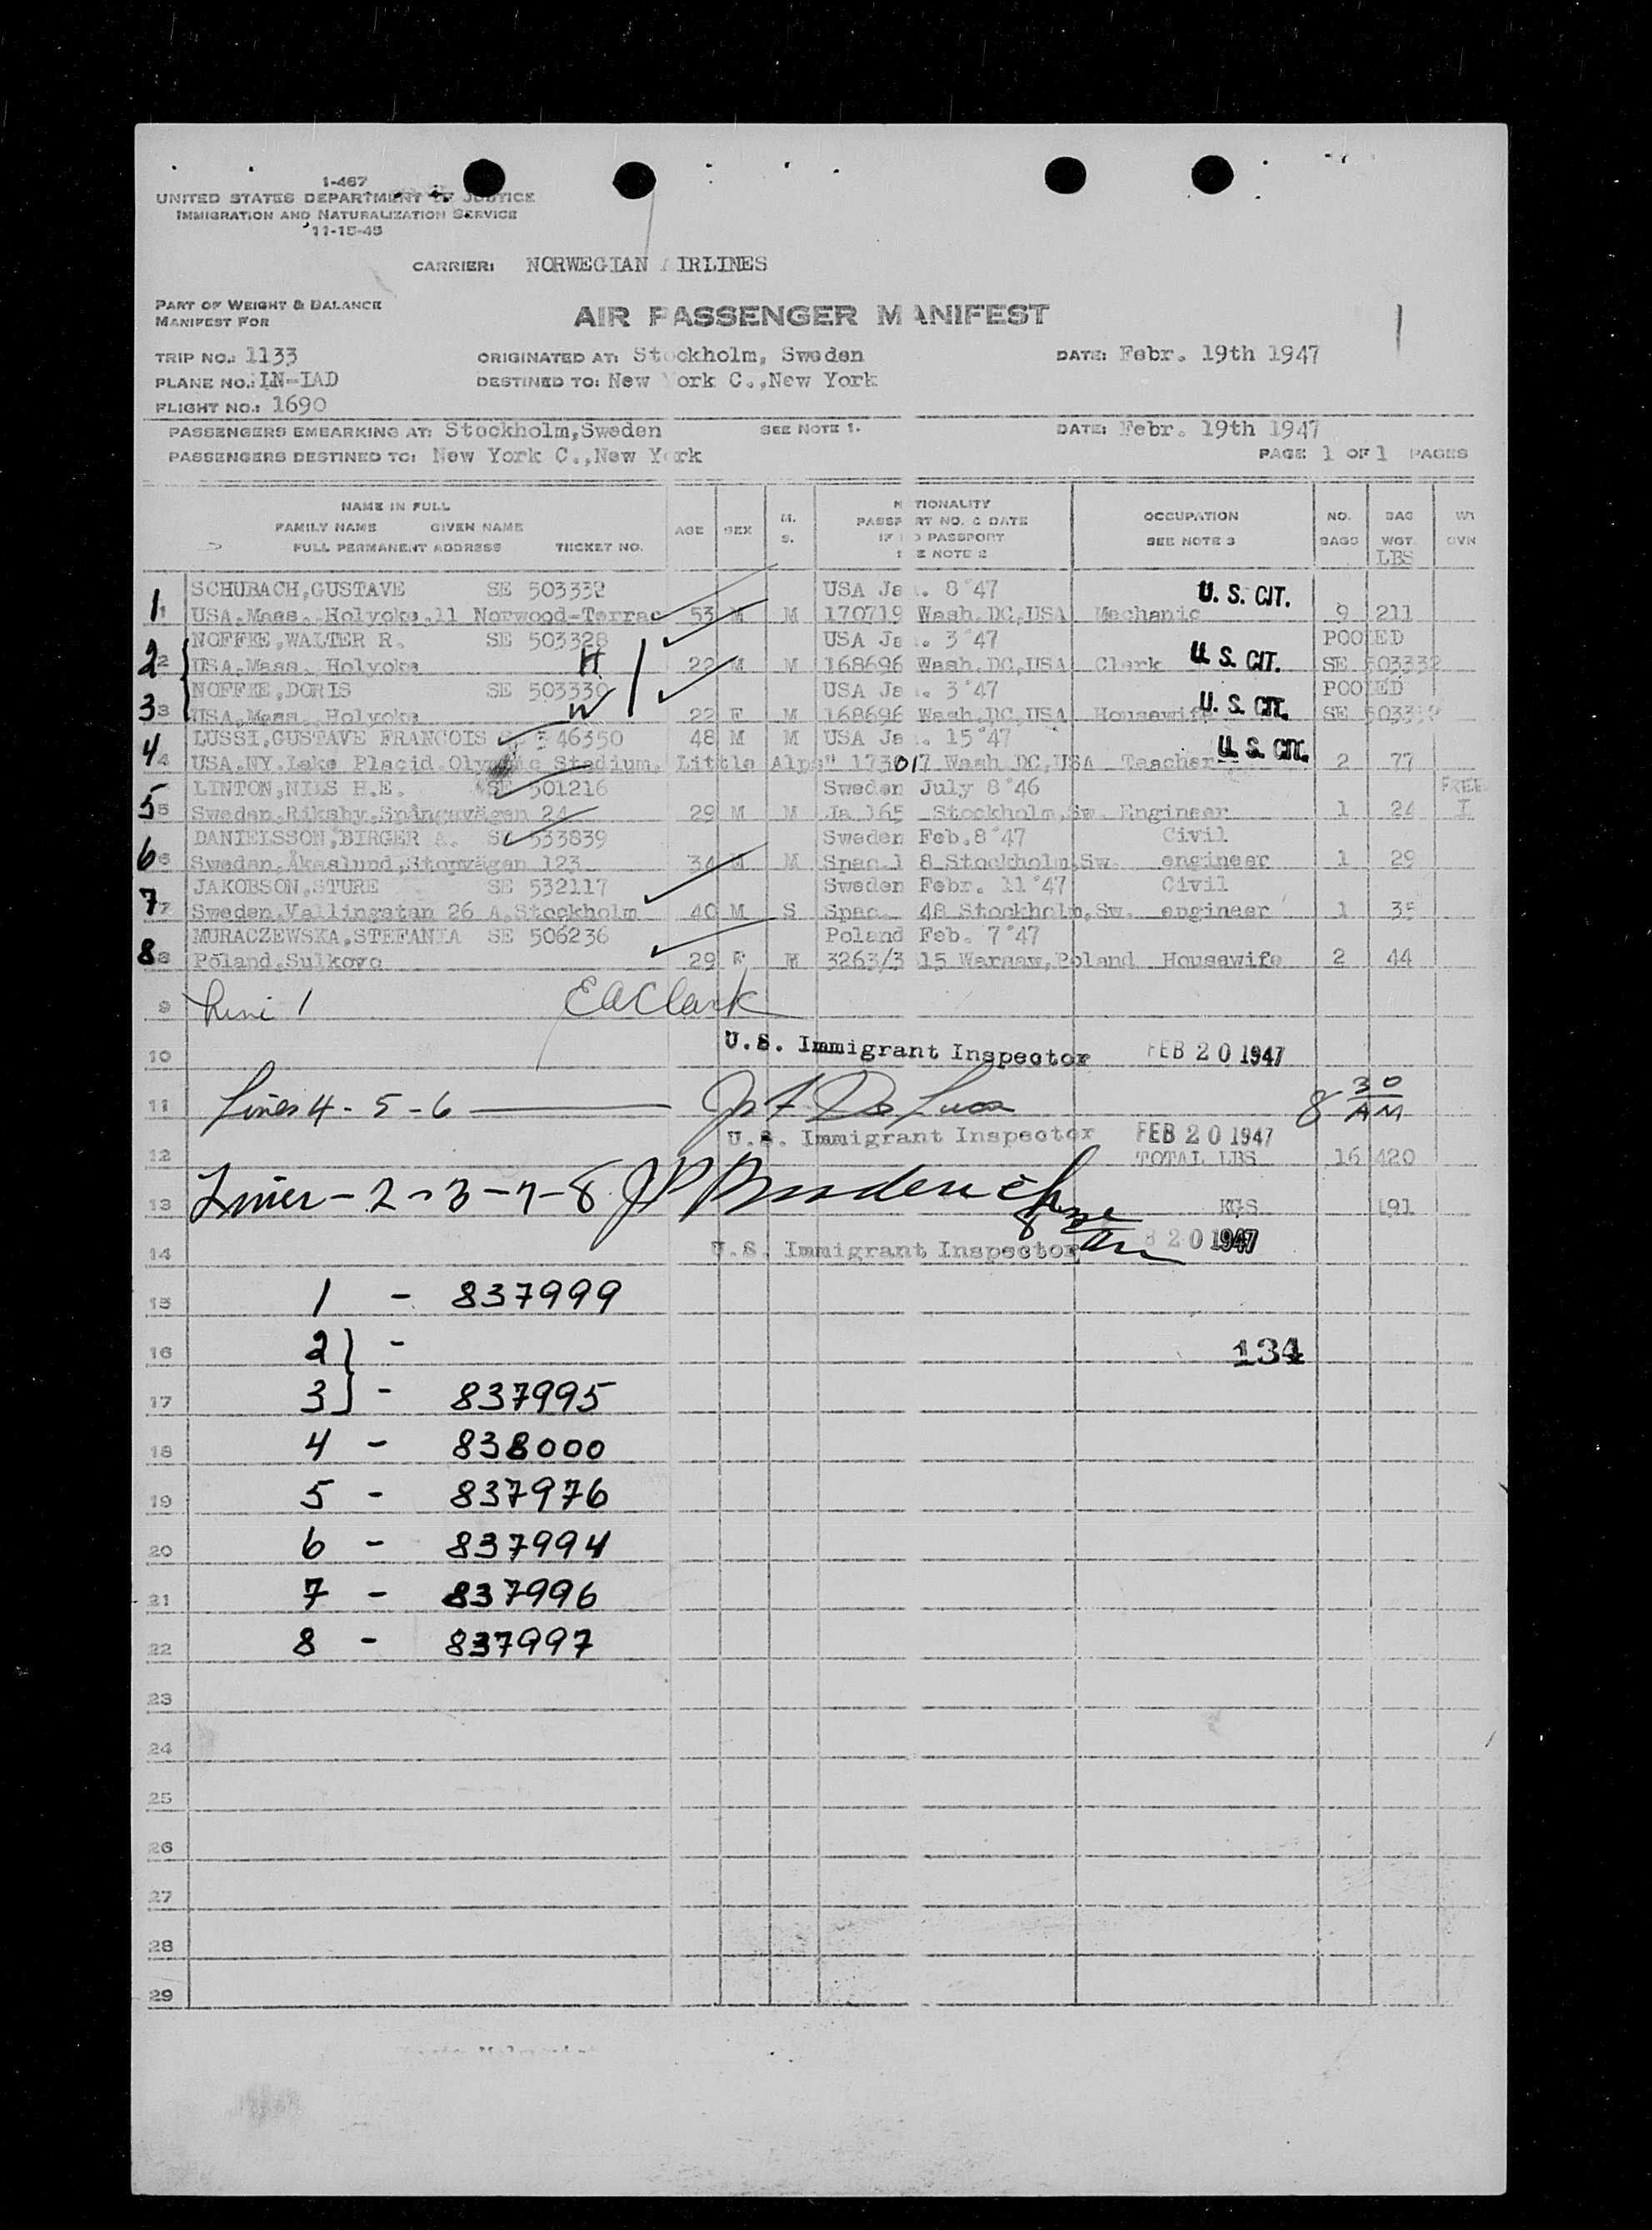 1-467
UNITED STATES DEPARTMENT OF JUSTICE
IMMIGRATION AND NATURALIZATION SERVICE
11-15-45
CARRIER: NORWEGIAN AIRLINES
PART OF WEIGHT & BALANCE
MANIFEST FOR
AIR PASSENGER MANIFEST
TRIP NO.: 1133 ORIGINATED AT: Stockholm, Sweden DATE: Febr. 19th 1947
PLANE NO.: LN-IAD DESTINED TO: New York C.,New York
FLIGHT NO.: 1690
PASSENGERS EMBARKING AT: Stockholm,Sweden SEE NOTE 1. DATE: Febr. 19th 1947
PASSENGERS DESTINED TO: New York C.,New York PAGE 1 OF 1 PAGES
NAME IN FULL NATIONALITY
FAMILY NAME GIVEN NAME AGE SEX M. PASSPORT NO. & DATE OCCUPATION NO. BAG WT
FULL PERMANENT ADDRESS TICKET NO. S. IF NO PASSPORT SEE NOTE 3 BAGS WGT. OVN
SEE NOTE 2 LBS
SCHUBACH,GUSTAVE SE 503332 USA Jan. 8'47 U. S. CIT.
1 1 USA,Mass., Holyoke,11 Norwood-Terrac 53 M M 170719 Wash.DC,USA Mechanic 9 211
NOFFKE,WALTER R. SE 503328 USA Jan. 3'47 POOLED
2 2 USA,Mass. Holyoke H 22 M M 168696 Wash.DC,USA Clerk U. S. CIT. SE 503332
NOFFKE,DORIS SE 503330 USA Jan. 3'47 POOLED
3 3 USA,Mass., Holyoke W 22 F M 168696 Wash.DC,USA Housewife U. S. CIT. SE
LUSSI,GUSTAVE FRANCOIS 346350 48 M M USA Jan. 15'47
4 4 USA.NY.Lake Placid.Olympic Stadium, Little Alps" 173017 Wash.DC,USA Teacher U. S. CIT. 2 77
LINTON,NILS H.E. SE 501216 Sweden July 8'46 FREE
5 5 Sweden,Riksby,Spångavägen 24 29 M M Ja 165 Stockholm,Sw. Engineer 1 24 I
DANIELSSON,BIRGER A. SE 533839 Sweden Feb.8'47 Civil
6 6 Sweden,Åkeslund,Stopvägen 123 34 M M Spec.1 8 Stockholm,Sw. engineer 1 29
JAKOBSON,STURE SE 532117 Sweden Febr. 11'47 Civil
7 7 Sweden,Vallingatan 26 A,Stockholm 40 M S Spec. 48 Stockholm,Sw. engineer 1 35
MURACZEWSKA,STEFANIA SE 506236 Poland Feb. 7'47
8 8 Poland,Sulkovo 29 F M 3263/3 15 Warsaw,Poland Housewife 2 44
9 Line 1 EAClark
10 U.S. Immigrant Inspector FEB 20 1947
11 Lines 4 - 5 - 6 — Jos F De Luca 8 30 AM
U.S. Immigrant Inspector FEB 20 1947
12 TOTAL LBS 16 420
13 Lines - 2 - 3 - 7 - 8 JP Broderick KGS 191
14 U.S. Immigrant Inspector B 20 1947
15 1 - 837999
16 2 } - 134
17 3 } - 837995
18 4 - 838000
19 5 - 837976
20 6 - 837994
21 7 - 837996
22 8 - 837997
23
24
25
26
27
28
29